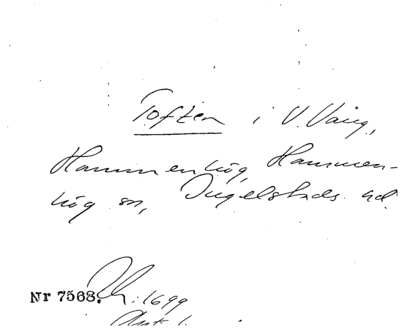 Toften i V. Vång,
Hammenhög, Hammen-
hög sn, Ingelstads hd.
Nr 7568. : 1699